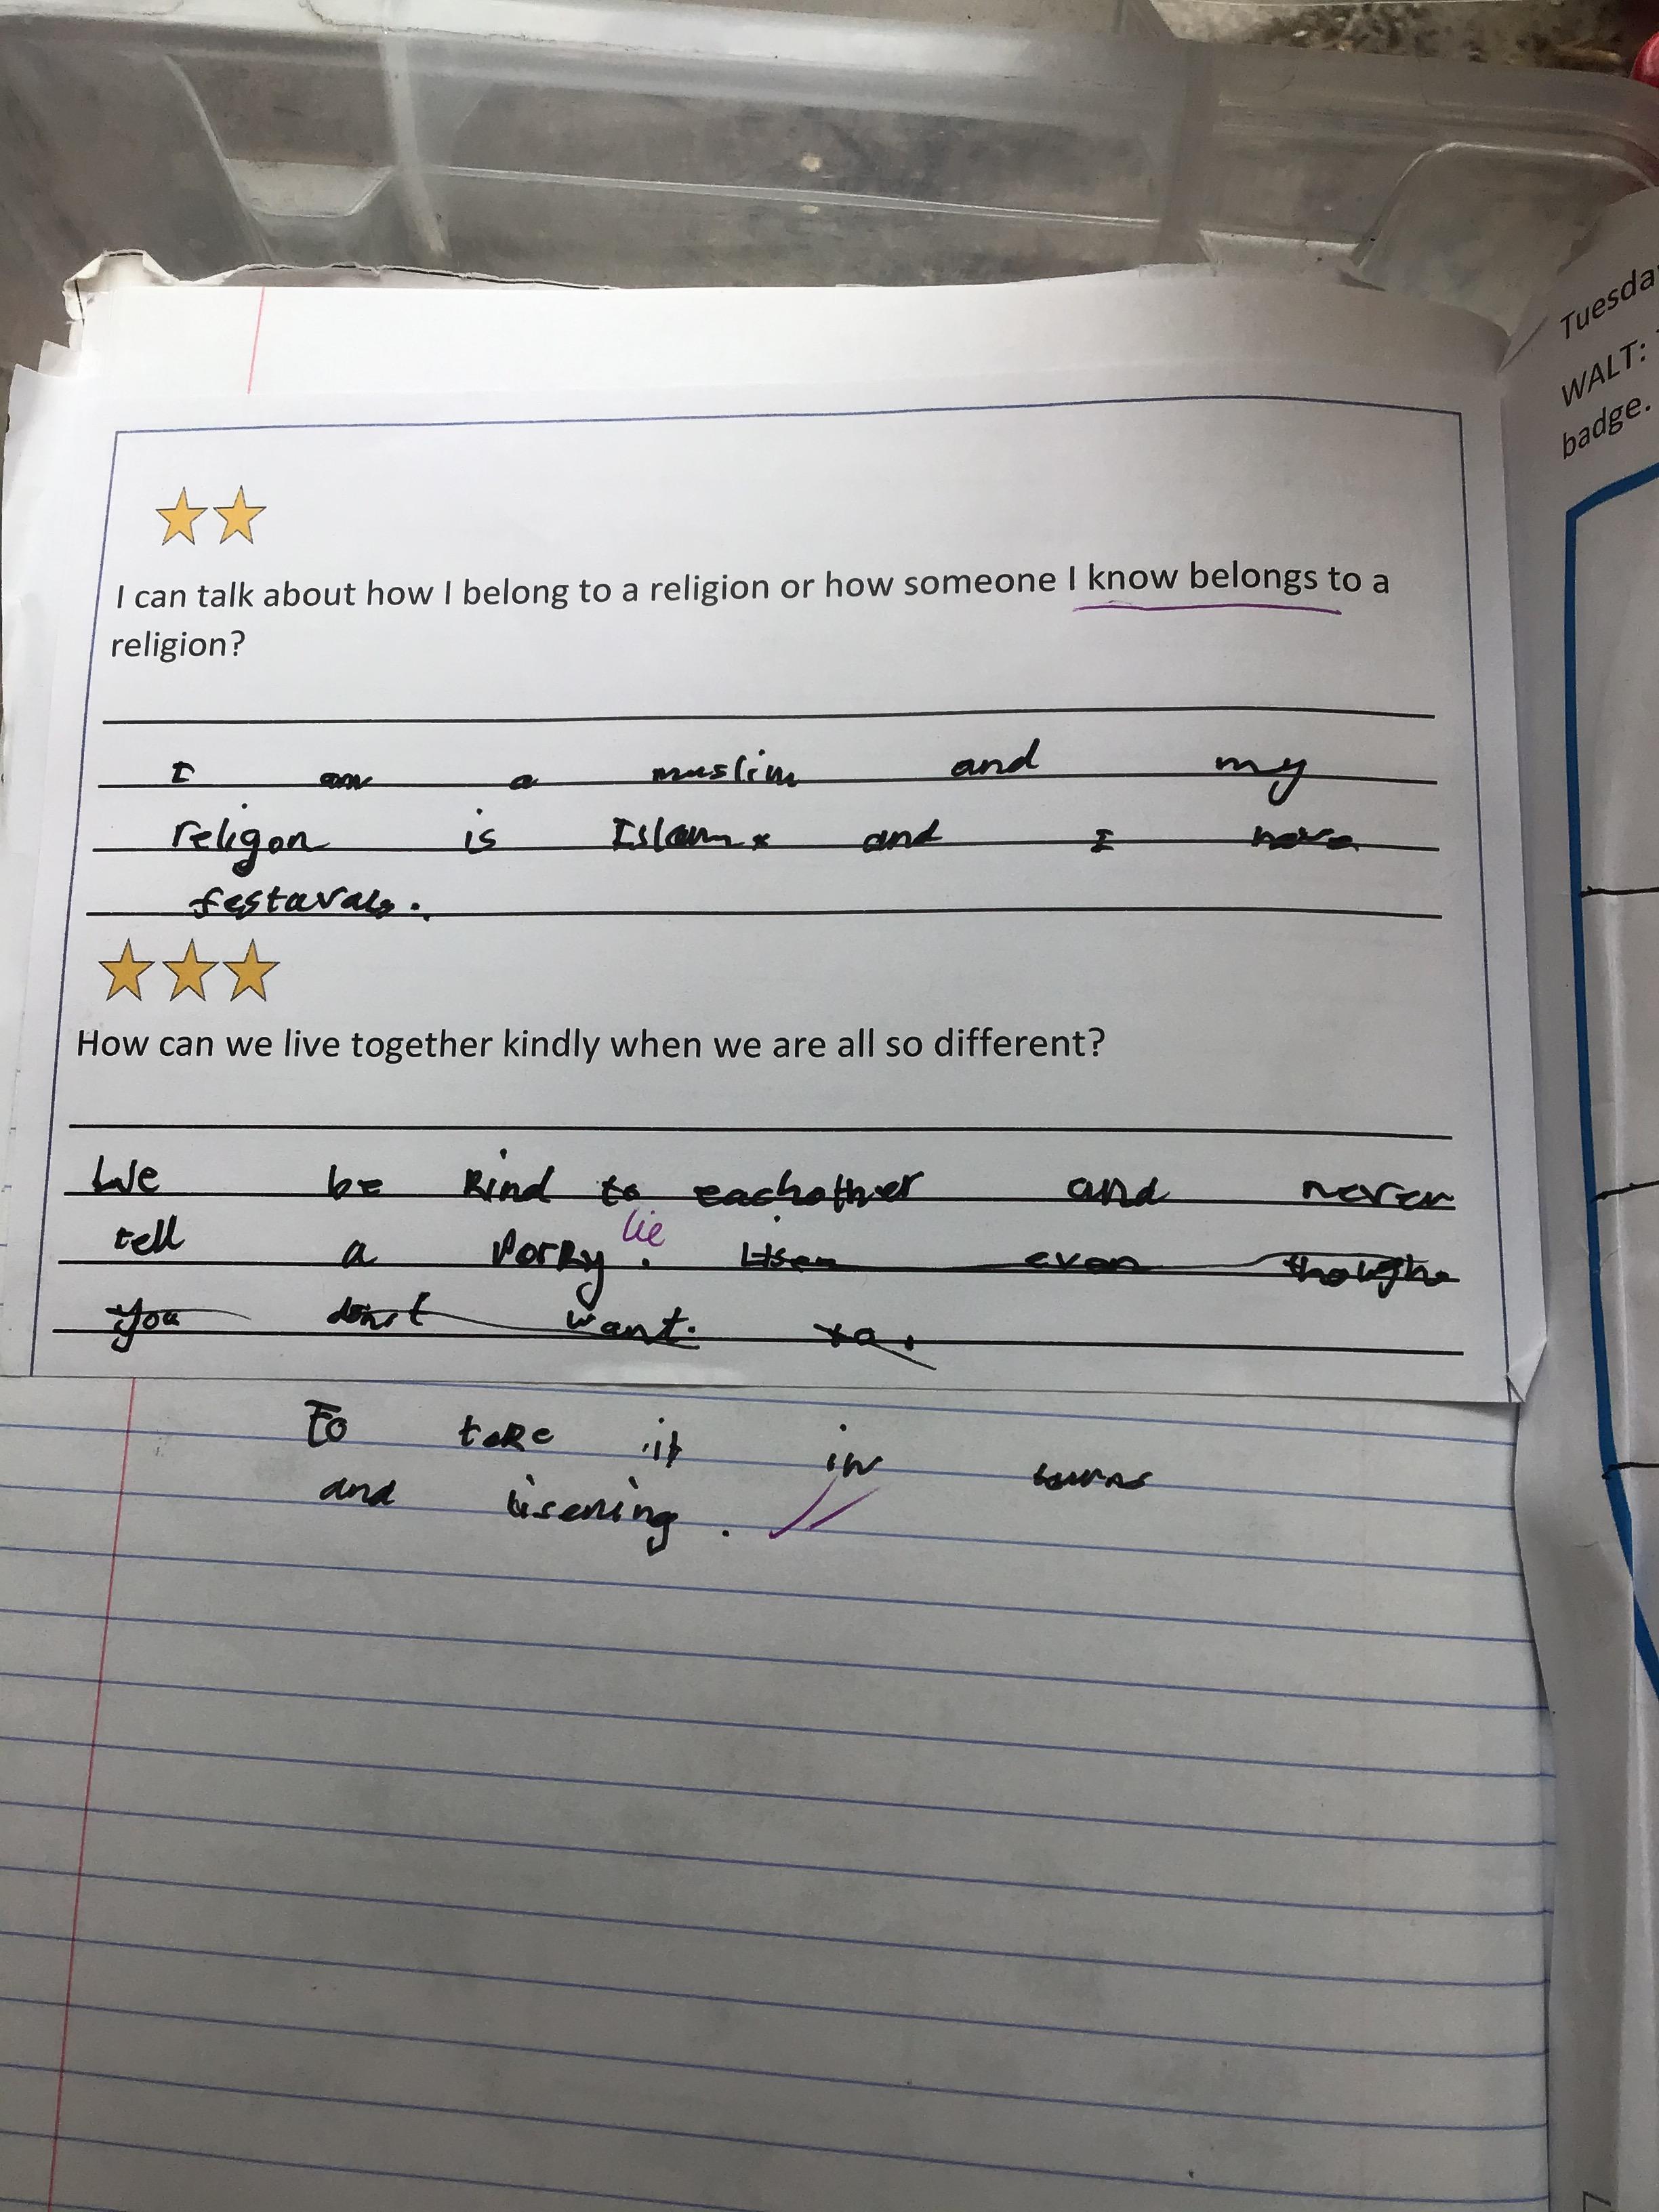 I can talk about how I belong to a religion or how someone I know belongs to a
religion?
I am a muslim and my
religon is Islam and I have
festavals.
How can we live together kindly when we are all so different?
We be kind to eachother and never
tell a Porky. lie
lisen even thoughe
you don't want. to.
To take it in turns
and lisening.
Tuesda
WALT:
badge.